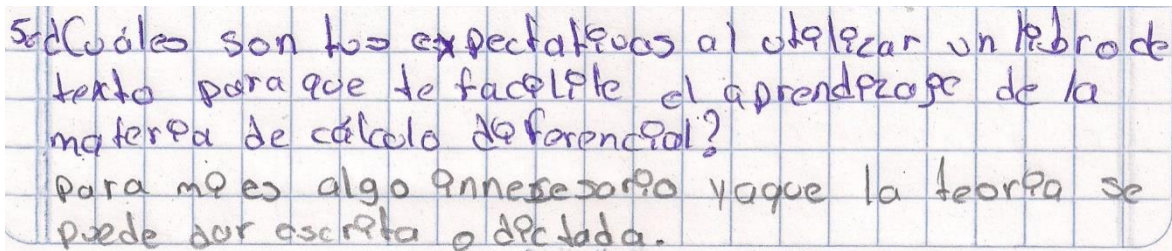 5.-¿Cuáles son tus expectativas al utilizar un libro de
texto para que te facilite el aprendizaje de la
materia de cálculo diferencial?
para mi es algo innesesario yaque la teoria se
puede dar escrita o dictada.